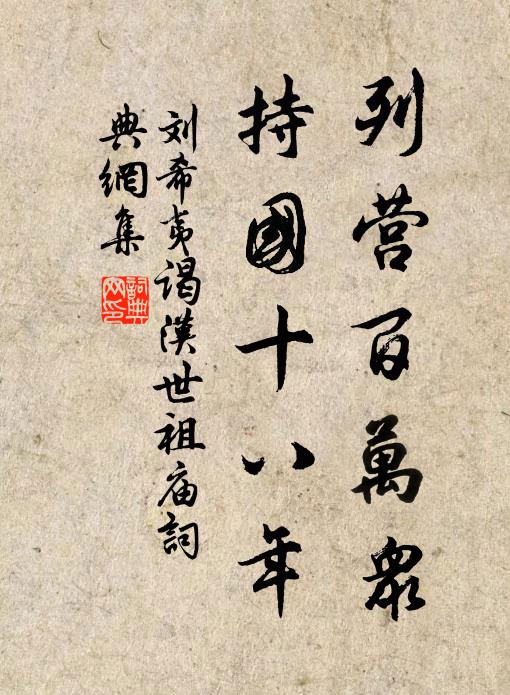 列营百萬眾
持國十八年
刘希夷谒漢世祖庙詞
典網集
詞典
网印